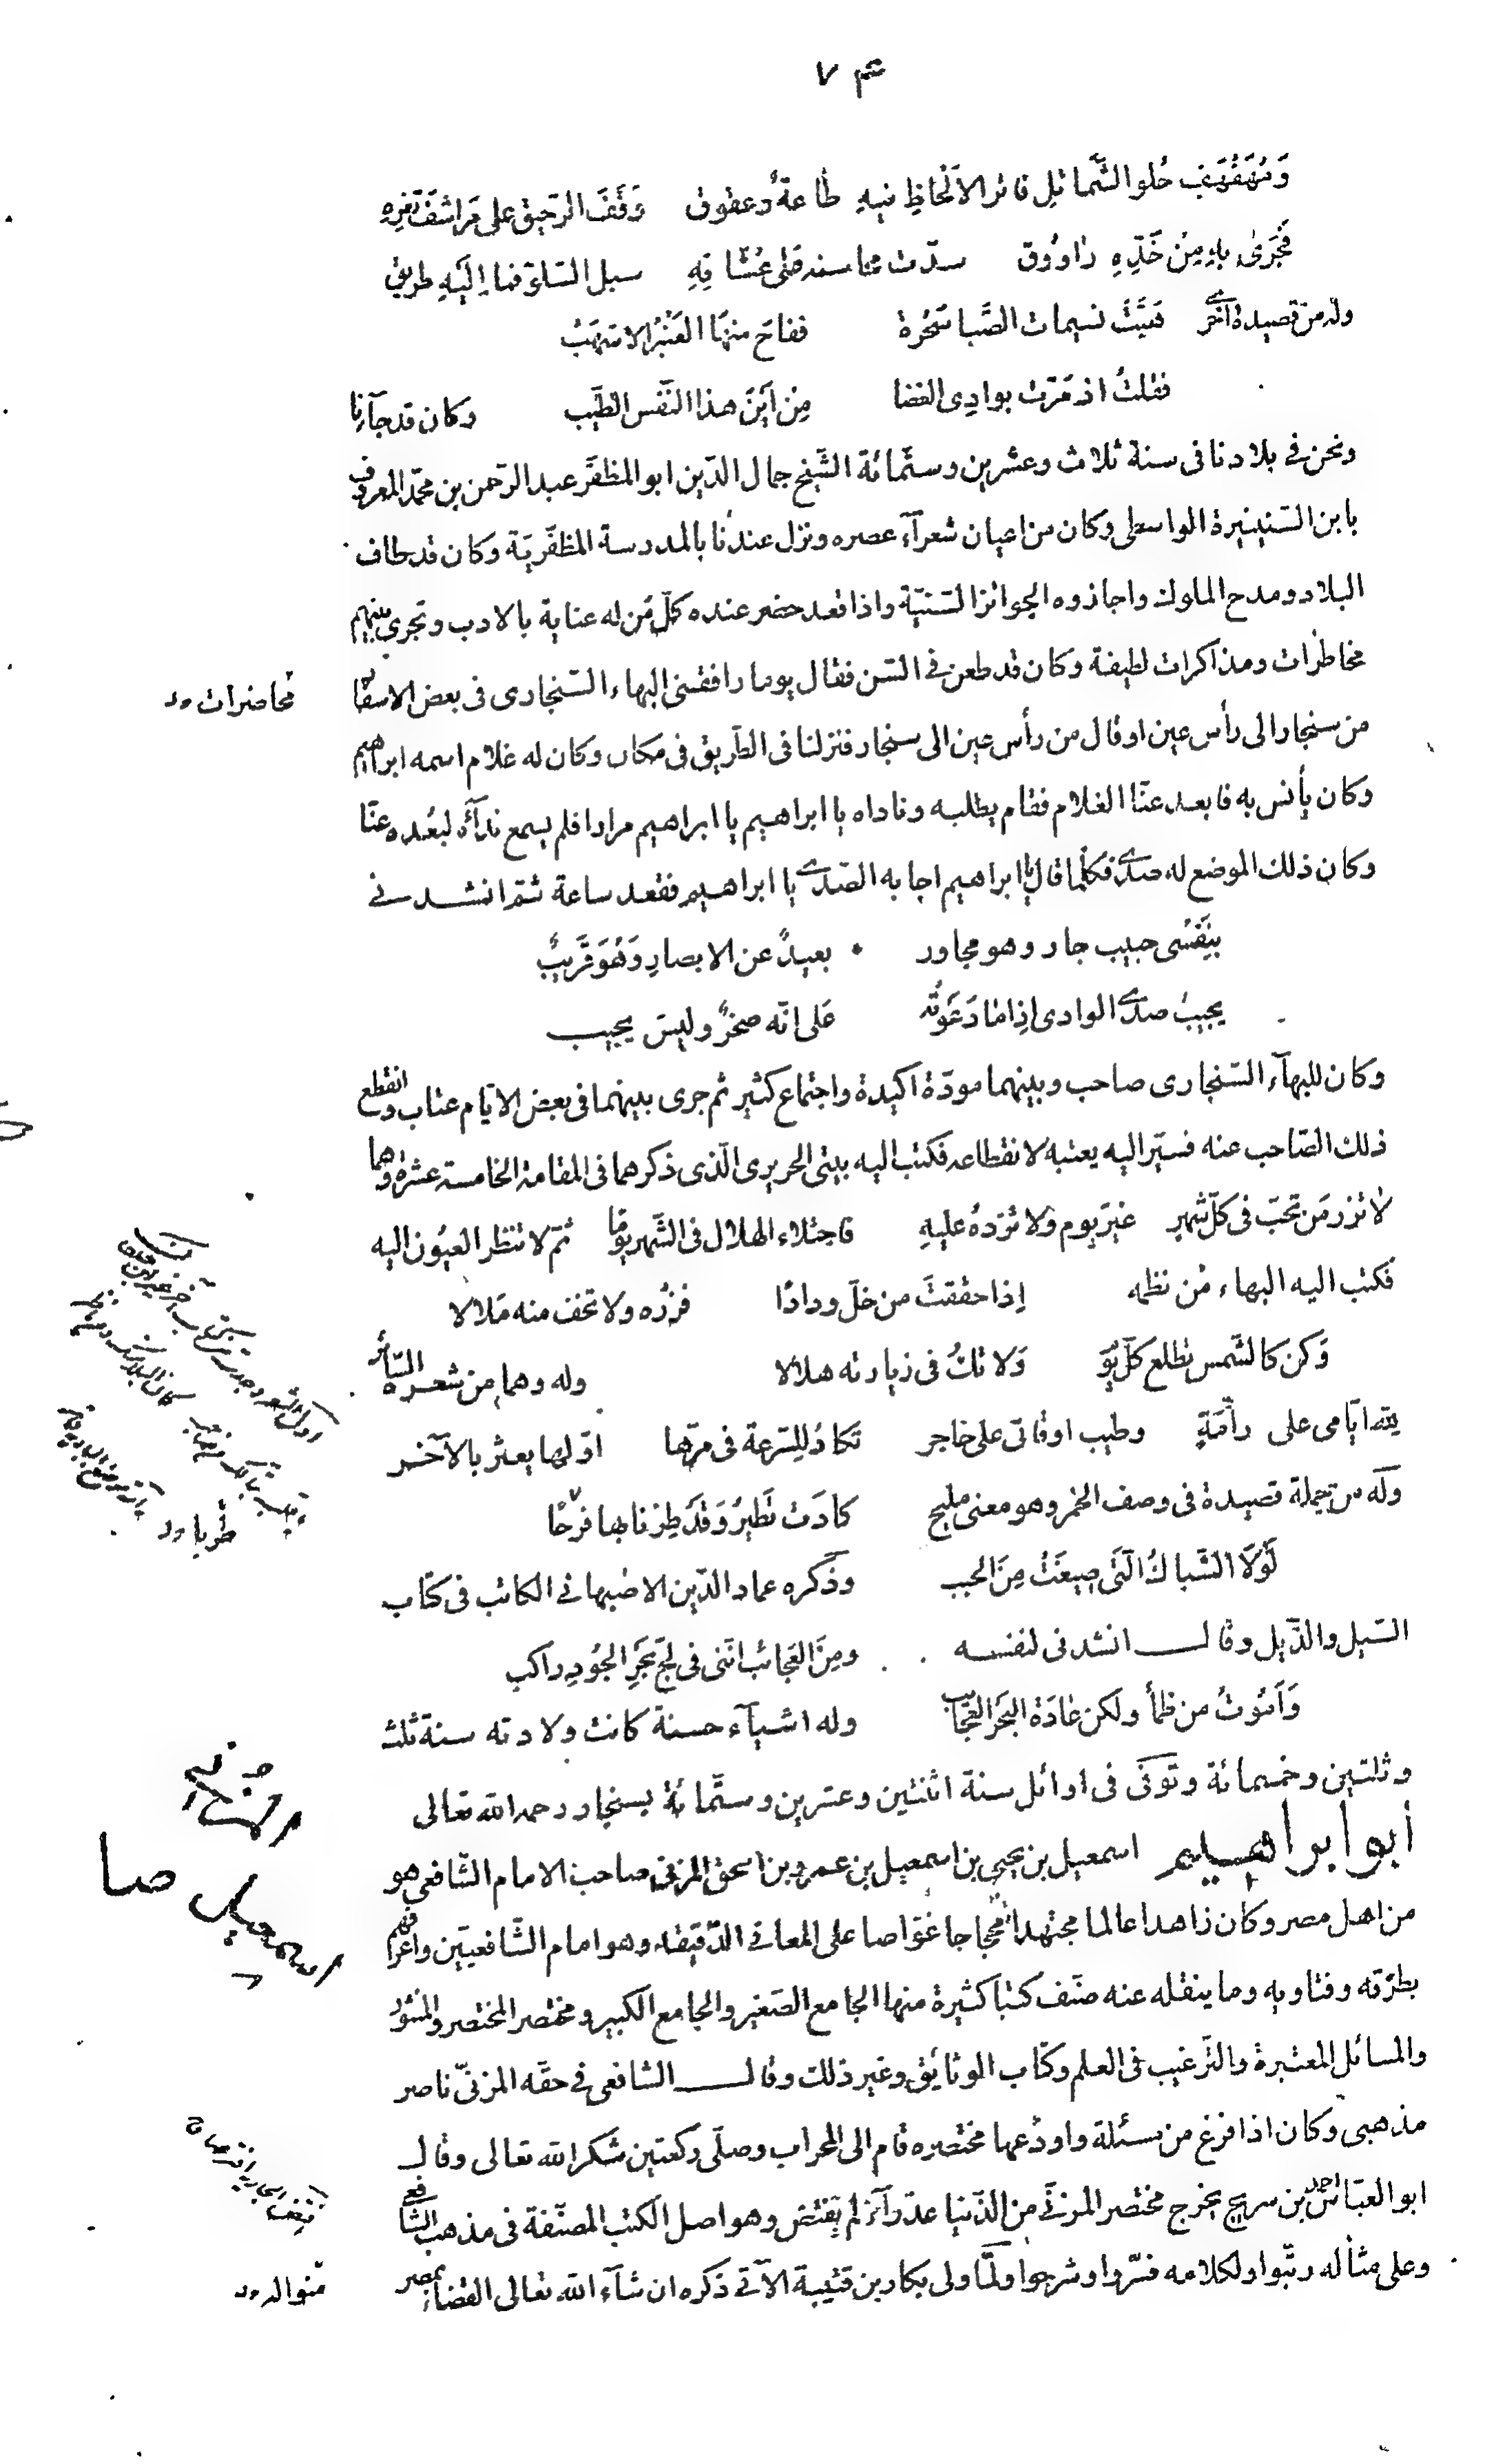 ٧٤
وَمُهَفْهَفٍ حُلو الشَّمائلِ فاتر الأَلْحاظِ فيهِ طاعةٌ وعقوق وَقَفَ الرّحيق على مَراشف ثغرِهِ
فَجَرىٰ بِهِ مِنْ خَدِّهِ راووُق سدّت محاسنه على عُشّاقِهِ سبل السّلوّ فما اِلَيهِ طريق
وله من قصيدة اخرى هَبَّتْ نسيمات الصَّبا سَحْرَة ففاحَ منهَا العَنْبَرُ الاَشهَبُ
فقلتُ اذ مَرّت بوادِى الغضا مِنْ اَيْنَ هذا النّفَس الطَّيّب وكان قد جآءنا
ونحن فى بلادنا فى سنة ثلاث وعشرين وستّمائة الشّيخ جمال الدّين ابو المظفّر عبد الرّحمن بن محمّد المعروف
بابن السّنينيرة الواسطى وكان من اعيان شعرآء عصره ونزل عندنا بالمدرسة المظفّريّة وكان قد طاف
البلاد ومدح الملوك واجازوه الجوائز السّنيّة واذا قعد حضر عنده كلّ مَن له عناية بالادب وتجرى بينهم
مخاطرات ومذاكرات لطيفة وكان قد طعن فى السّن فقال يوما رافقنى البهاء السّنجارى فى بعض الاسفار
محاضرات
من سنجار الى رأس عين او قال من رأس عين الى سنجار فنزلنا فى الطّريق فى مكان وكان له غلام اسمه ابراهيم
وكان يأنس به فابعد عنّا الغلام فقام يطلبه وناداه يا ابراهيم يا ابراهيم مرارا فلم يسمع ندآءه لبُعده عنّا
وكان ذلك الموضع له صدى فكلّما قال يا ابراهيم اجابه الصّدى يا ابراهيم فقعد ساعة ثمّ انشدنى
بنَفْسى حبيب جار وهو مجاور بعيدٌ عن الابصارِ وَهُوَ قَريبٌ
يجيبُ صدى الوادى اِذا ما دَعَوتُه عَلى انّه صخرٌ وليسَ يجيب
وكان للبهآء السّنجارى صاحب وبينهما مودّة اكيدة واجتماع كثير ثم جرى بينهما فى بعض الايّام عتاب وانقطع
ذلك الصّاحب عنه فسيّر اليه يعتبه لانقطاعه فكتب اليه بيتى الحريرى الّذى ذكرهما فى المقامة الخامسة عشرة وهما
لا تزر مَن تحبّ فى كلّ شهرٍ غيرَ يوم وَلا تزدهُ عليهِ فاجتلاء الهلال فى الشّهر يومًا ثمّ لا تنظر العيُون اليه
فكتب اليه البهاء مْن نظمه اِذا حقّقتَ من خلّ ودادًا فزرُه ولا تخف منه مَلالا
وَكن كالشّمس تطلع كلّ يَوم وَلا تكُ فى زيارته هلالا وله وهما من شعره السّائر
لله ايّامى على رامَةٍ وطيب اوقاتى على حاجر تَكادُ للسّرعة فى مرّها اوّلها يعثر بالآخر
وله من جملة قصيدة فى وصف الخمر وهو معنى مليح كادَت تَطيرُ وَقَد طِرْنا بها فرحًا
طربا
لَوْلا الشّباكُ الّتى صيغَتْ مِنَ الحبب وذكره عماد الدّين الاصْبهانى الكاتب فى كتاب
السّيل والذّيل وقال انشدنى لنفسه ومِنَ العَجائب انّنى فى لجّ بَحْرِ الجُودِ راكب
وَاَمُوتُ من ظمأ ولكن عادَة البَحْر العجايب وله اشيآء حسنة كانت ولادته سنة ثلث
وثلثين وخمسمائة وتوفّى فى اوائل سنة اثنتين وعشرين وستّمائة بسنجار رحمه الله تعالى
المُزنى
أبو ابراهيم اسمعيل بن يحيى بن اسمعيل بن عمرو بن اسحق المزنى صاحب الامام الشّافعى هو
اسمعيل صا
من اهل مصر وكان زاهدا عالما مجتهدا محجاجا غوّاصا على المعانى الدّقيقة وهو امام الشّافعيّين واعرفهم
بطرقه وفتاويه وما ينقله عنه صنّف كتبا كثيرة منها الجامع الصّغير والجامع الكبير ومختصر المختصر والمنثور
والمسائل المعتبرة والتّرغيب فى العلم وكتاب الوثائق وغير ذلك وقال الشافعى فى حقّه المزنىّ ناصر
مذهبى وكان اذا فرغ من مسئلة واودعها مختصره قام الى المحراب وصلّى ركعتين شكرا لله تعالى وقال
ابو العبّاس احمد بن سريج يخرج مختصر المزنى من الدّنيا عذرآء لم يفتض وهو اصل الكتب المصنّفة فى مذهب الشّافعى
وعلى مثاله رتّبوا ولكلامه فسّروا وشرحوا ولمّا ولى بكار بن قتيبة الآتى ذكره ان شآء الله تعالى القضاء بمصر
منواله